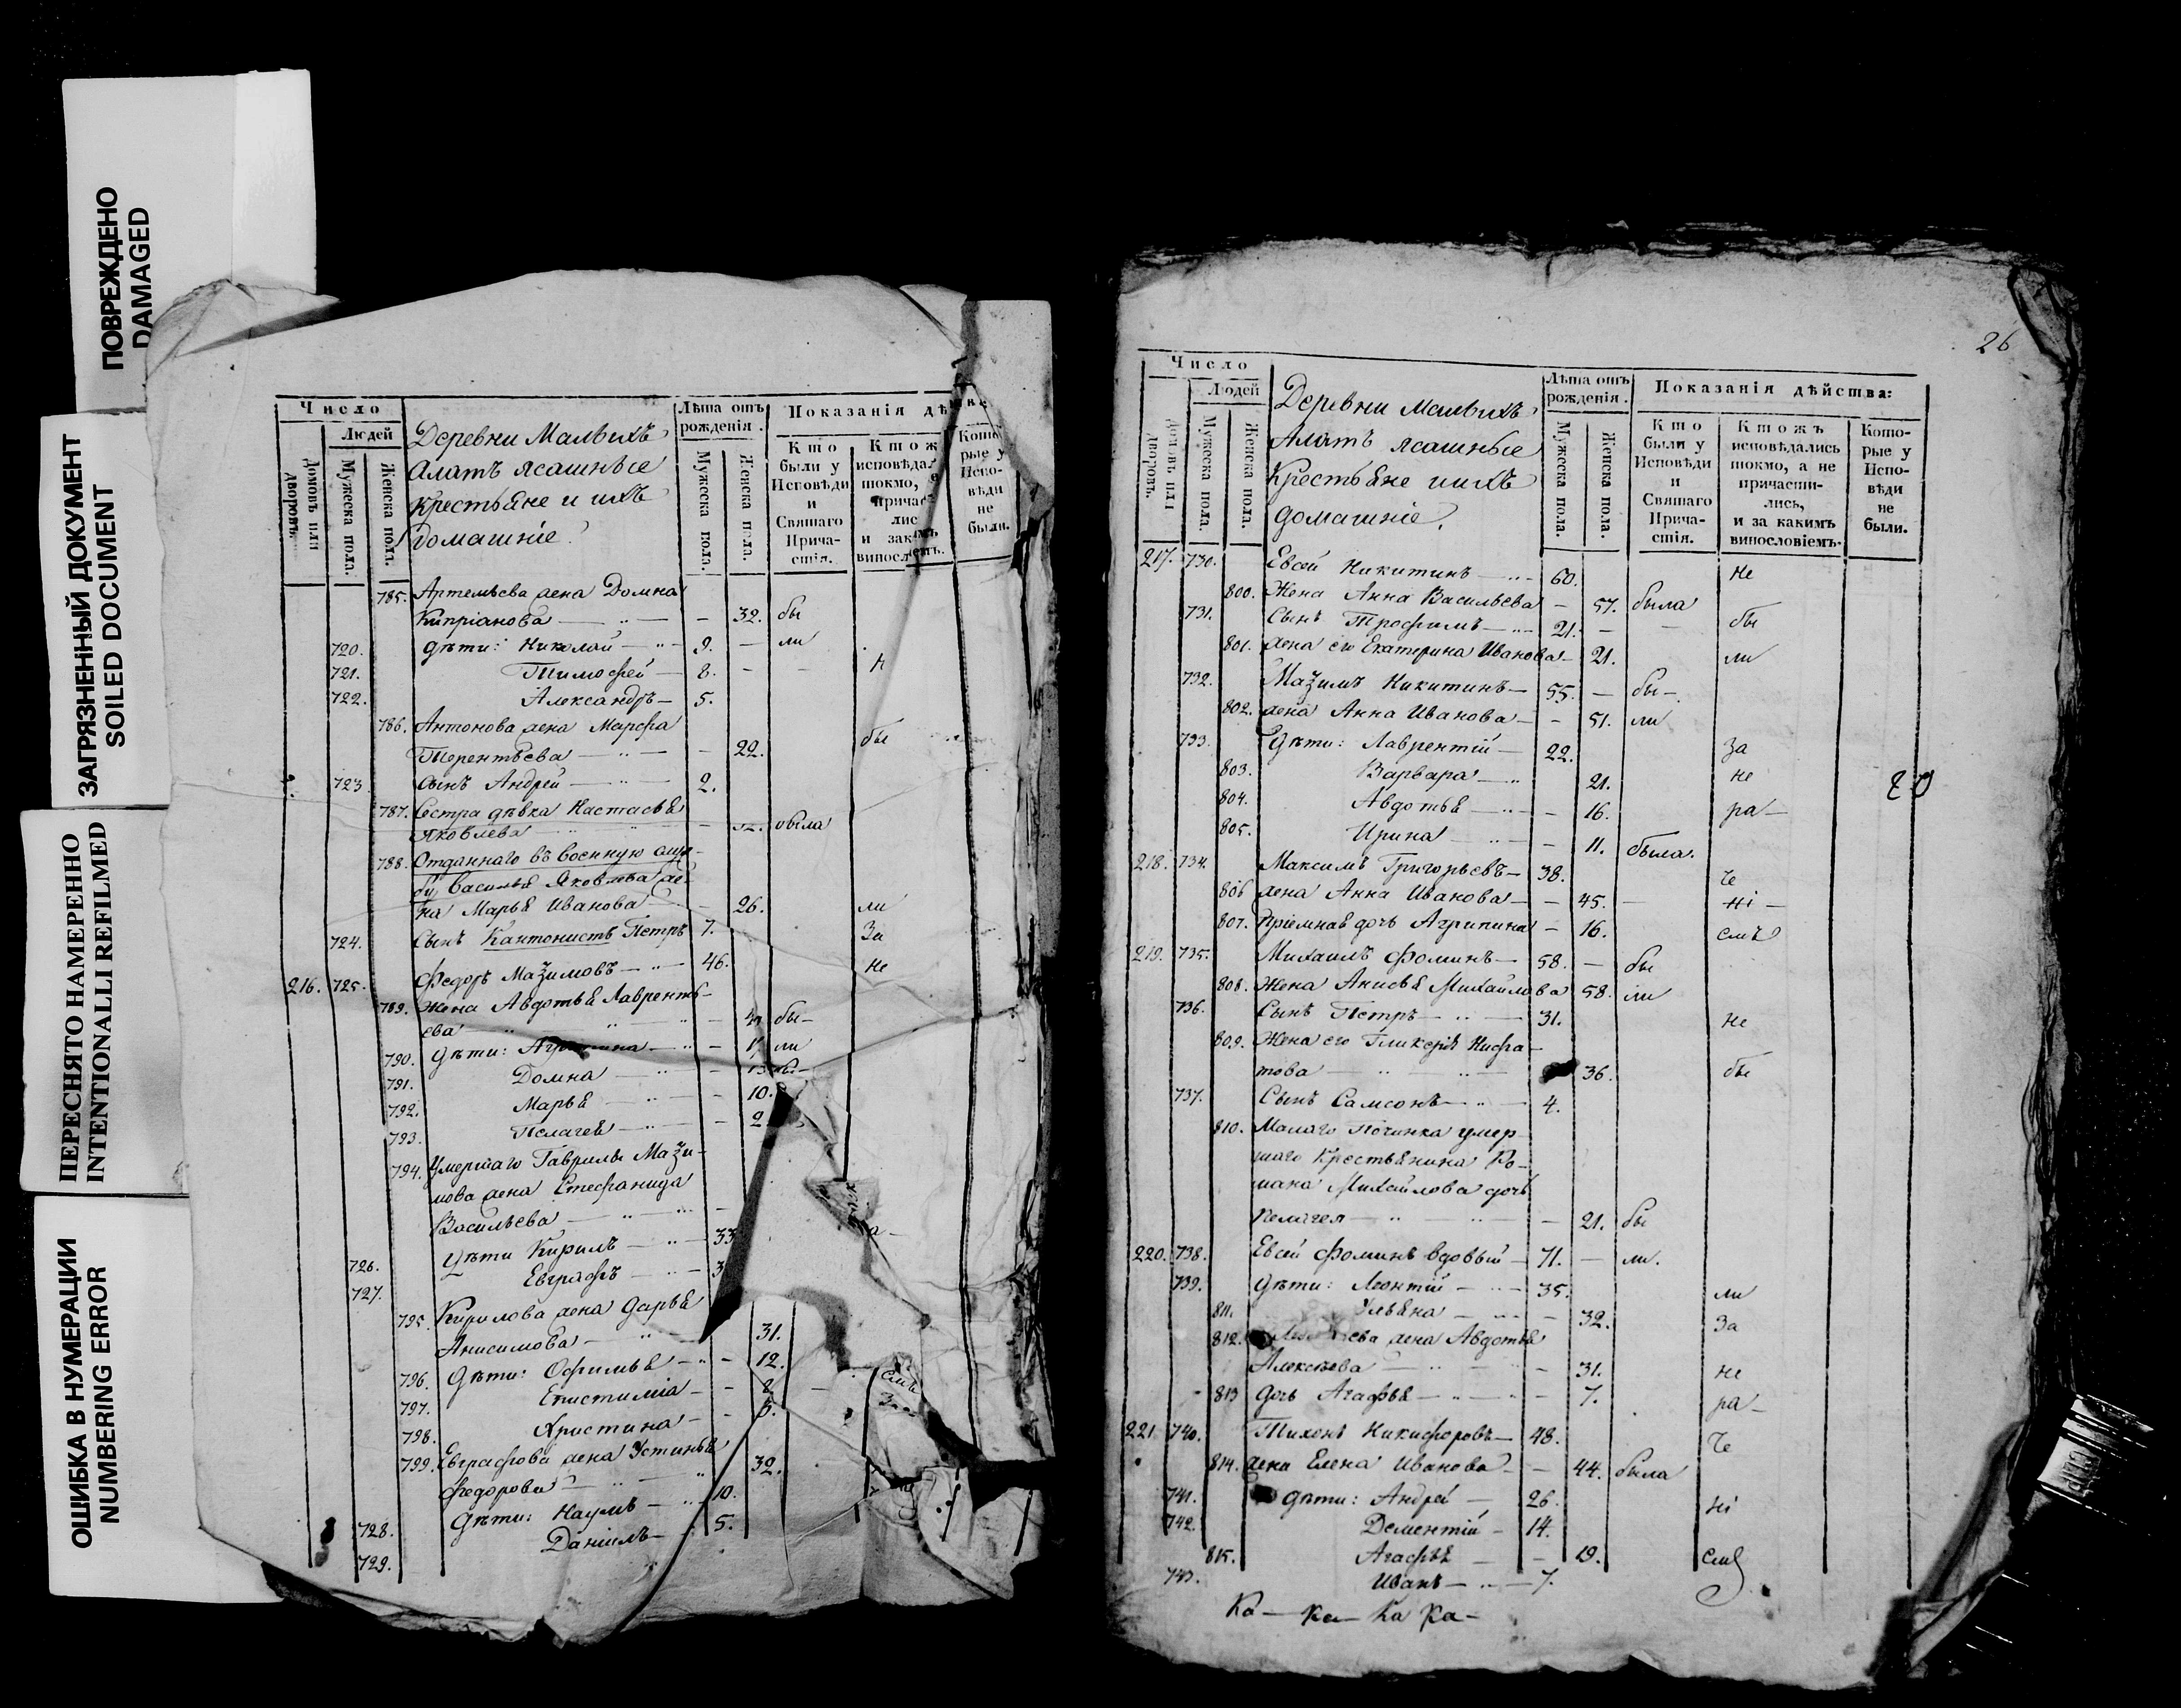 ПОВРЕЖДЕНО
DAMAGED
ЗАГРЯЗНЕННЫЙ ДОКУМЕНТ
SOILED DOCUMENT
ПЕРЕСНЯТО НАМЕРЕННО
INTENTIONALLI REFILMED
ОШИБКА В НУМЕРАЦИИ
NUMBERING ERROR
Число
Людей
Домовъ или дворовъ.
Мужеска пола.
Женска пола.
Деревни Малыхъ
Алатъ ясашные
крестьяне и ихъ
домашніе.
Лѣта отъ рожденія.
Мужеска пола.
Женска пола.
Показанія
Кто были у Исповѣди и Святаго Прича-стія.
785. Артемьева жена Домна
Кипріанова — 32. бы
720. дѣти: Николай — 9. — ли
721. Тимофей — 8. - -
722. Александръ — 5.
786. Антонова жена Марфа
Терентьева — 22. бы
723. сынъ Андрей — 2.
787. Сестра дѣвка Настасья
Яковлева была
788. Отданнаго въ военную служ-
бу Василья Яковлева же-
на Марья Иванова — 26. ли
724. Сынъ Кантонистъ Петръ 7. За
216. 725. Федоръ Мазимовъ — 46. Не
789. Жена Авдотья Лавренть-
ева — бы-
790. дѣти: — ли
791. Домна —
792. Марья — 10.
793. Пелагея — 2
794. Умершаго Гаврилы Мази-
мова жена Стефанида
Васильева —
726. Дѣти Кирилъ — 33
727. Евграфъ — 3
795. Кирилова жена Дарья
Анисимова — 31.
796. дѣти: Офимья — 12.
797. Епистиміа —
798. Христина —
799. Евграфова жена Устинья
Федорова — 32.
728. Дѣти: Наумъ — 10.
729. Даніилъ — 5.
26
Число
Людей
Домовъ или дворовъ.
Мужеска пола.
Женска пола.
Деревни Малыхъ
Алатъ ясашные
Крестьяне и ихъ
домашніе.
Лѣта отъ рожденія.
Мужеска пола.
Женска пола.
Показанія дѣйства:
Кто были у Исповѣди и Святаго Прича-стія.
Ктожъ исповѣдались токмо, а не причасти-лись, и за какимъ винословіемъ.
Кото-рые у Испо-вѣди не были.
217. 730. Евсей Никитинъ — 60. Не
800. Жена Анна Васильева — 57. была
731. Сынъ Трофимъ — 21. — бы
801. жена его Екатерина Иванова — 21. ли
732. Мазимъ Никитинъ — 55. — бы-
802. жена Анна Иванова — 51. ли
733. Дѣти: Лаврентій — 22. За
803. Варвара — 21. не
804. Авдотья — 16. ра-
805. Ирина — 11. была.
218. 734. Максимъ Григорьевъ — 38. че
806 жена Анна Иванова — 45. — ні-
807. Пріемная дочь Агрипина — 16. емъ
219. 735. Михаилъ Фоминъ — 58. — бы
808. Жена Анисья Михайлова 58. ли
736. Сынъ Петръ — 31. Не
809. Жена его Гликерія Нифа-
това — 36. бы
737. Сынъ Самсонъ — 4.
810. Малаго Починка умер-
шаго Крестьянина Ро-
мана Михайлова дочь
Пелагея — 21. бы
220. 738. Евсей Фоминъ вдовый — 71. — ли.
739. дѣти: Леонтій — 35. ли
811. Ульяна — 32. За
812. жена Авдотья
Алексѣева — 31. не
813 дочь Агафья — 7. ра-
221. 740. Тихонъ Никифоровъ — 48. че
814. жена Елена Иванова — 44. была
741. дѣти: Андрей — 26. ні
742. Дементій — 14.
815. Агафья — 19. емъ
743. Иванъ — 7.
Ка — Ка — Ка Ка-